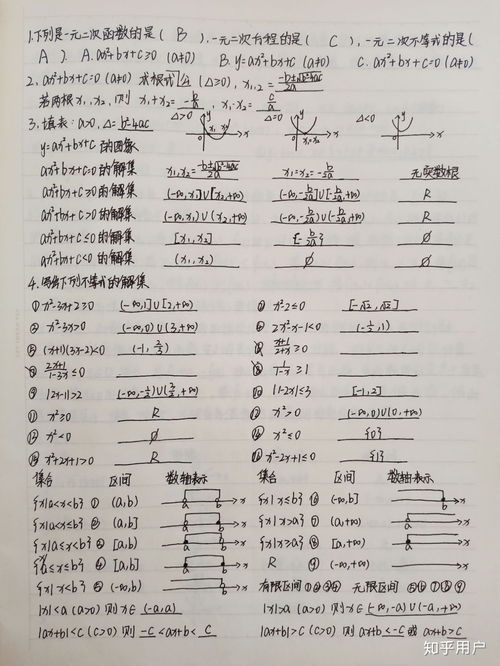 1.下列是一元二次函数的是( B ),一元二次方程的是( C ),一元二次不等式的是(
A ). A. ax²+bx+c≥0 (a≠0) B. y=ax²+bx+c (a≠0) C. ax²+bx+c=0 (a≠0)
2. ax²+bx+c=0 (a≠0) 求根公式 (△≥0), x₁,₂ = (-b±√b²-4ac)/2a
若两根 x₁, x₂, 则 x₁+x₂= -b/a , x₁·x₂= c/a
3. 填表: a>0, △= b²-4ac △>0 △=0 △<0
y=ax²+bx+c 的图象
ax²+bx+c=0 的解集 x₁,x₂= (-b±√b²-4ac)/2a x₁=x₂= -b/2a 无实数根
ax²+bx+c≥0 的解集 (-∞, x₁]∪[x₂,+∞) (-∞,-b/2a]∪[-b/2a,+∞) R
ax²+bx+c>0 的解集 (-∞, x₁)∪(x₂,+∞) (-∞,-b/2a)∪(-b/2a,+∞) R
ax²+bx+c≤0 的解集 [x₁, x₂] {-b/2a} ∅
ax²+bx+c<0 的解集 (x₁, x₂) ∅ ∅
4. 下列不等式的解集
① x²-3x+2≥0 (-∞,1]∪[2,+∞) x²-2≤0 [-√2,√2]
x²-3x>0 (-∞,0)∪(3,+∞) 2x²-x-1<0 (-1/2,1)
(x+1)(3x-2)<0 (-1, 2/3) (x+1)/(2+x)≥0
(2x+1)/(1-3x)≤0 1/(1-x)≥1
|2x-1|>2 (-∞,-1/2)∪(3/2,+∞) |1-2x|≤3 [-1,2]
x²≥0 R x²>0 (-∞,0)∪(0,+∞)
x²<0 ∅ x²≤0 {0}
x²+2x+1>0 R x²-2x+1≤0 {1}
集合 区间 数轴表示 集合 区间 数轴表示
{x|a<x<b} ① (a,b) a b x {x|x≤b} ⑥ (-∞,b] b x
{x|a<x≤b} ② (a,b] a b x {x|x>a} ⑦ (a,+∞) a x
{x|a≤x<b} ③ [a,b) a b x {x|x≥a} ⑧ [a,+∞) a x
{a≤x≤b} ④ [a,b] a b x R ⑨ (-∞,+∞) x
{x|x<b} ⑤ (-∞,b) b x 有限区间 ①②③④ 无限区间 ⑤⑥⑦⑧⑨
|x|<a (a>0) 则 x∈ (-a,a) |x|>a (a>0) 则 x∈ (-∞,-a)∪(-a,+∞)
|ax+b|<c (c>0) 则 -c <ax+b< c |ax+b|>c (c>0) 则 ax+b<-c 或 ax+b>c
知乎用户